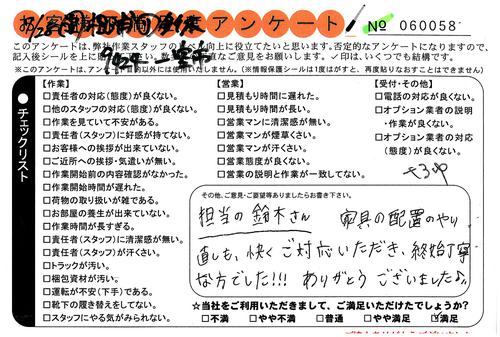 アンケート № 060058
このアンケートは、弊社作業スタッフのレベル向上に役立てたいと思います。否定的なアンケートになりますので、
記入後シールを上に
をお願いします。✓印は、いくつでも結構です。
※このアンケートは、
以外には使用いたしません。(※情報保護シールは1度はがすと、再度貼りなおすことはできません)
チェックリスト
【作業】
□責任者の対応(態度)が良くない。
□他のスタッフの対応(態度)が良くない。
□作業を見ていて不安がある。
□責任者(スタッフ)に好感が持てない。
□お客様への挨拶が出来ていない。
□ご近所への挨拶・気遣いが無い。
□作業開始前の内容確認がなかった。
□作業開始時間が遅れた。
□荷物の取り扱いが雑である。
□お部屋の養生が出来ていない。
□作業時間が長すぎる。
□責任者(スタッフ)に清潔感が無い。
□責任者(スタッフ)が汗くさい。
□トラックが汚い。
□梱包資材が汚い。
□運転が不安(下手)である。
□靴下の履き替えをしてない。
□スタッフにやる気がみられない。
【営業】
□見積もり時間に遅れた。
□見積もり時間が長い。
□営業マンに清潔感が無い。
□営業マンが煙草くさい。
□営業マンが汗くさい。
□営業態度が良くない。
□営業の説明と作業が一致してない。
【受付・その他】
□電話の対応が良くない。
□オプション業者の説明
・作業が良くない。
□オプション業者の対応
(態度)が良くない。
その他、ご意見・ご要望等ありましたらお書き下さい。
担当の鈴木さん 家具の配置のやり
直しも、快くご対応いただき、終始丁寧
な方でした!!! ありがとうございました♪
☆当社をご利用いただきまして、ご満足いただけたでしょうか?
□不満 □やや不満 □普通 □やや満足 ☑満足